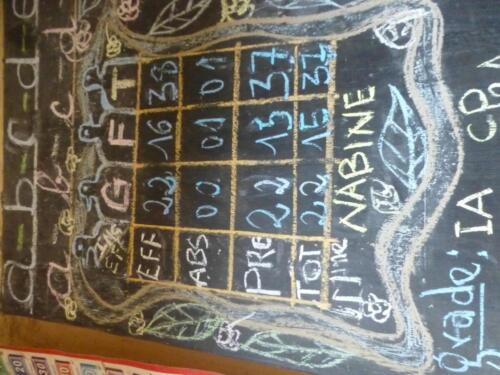 a - b - c - d - e
a - b - c - d
G F T
EFF 22 16 38
ABS 00 01 01
PRE 22 15 37
TOT 22 15 37
Mme NABINE
grade: IA